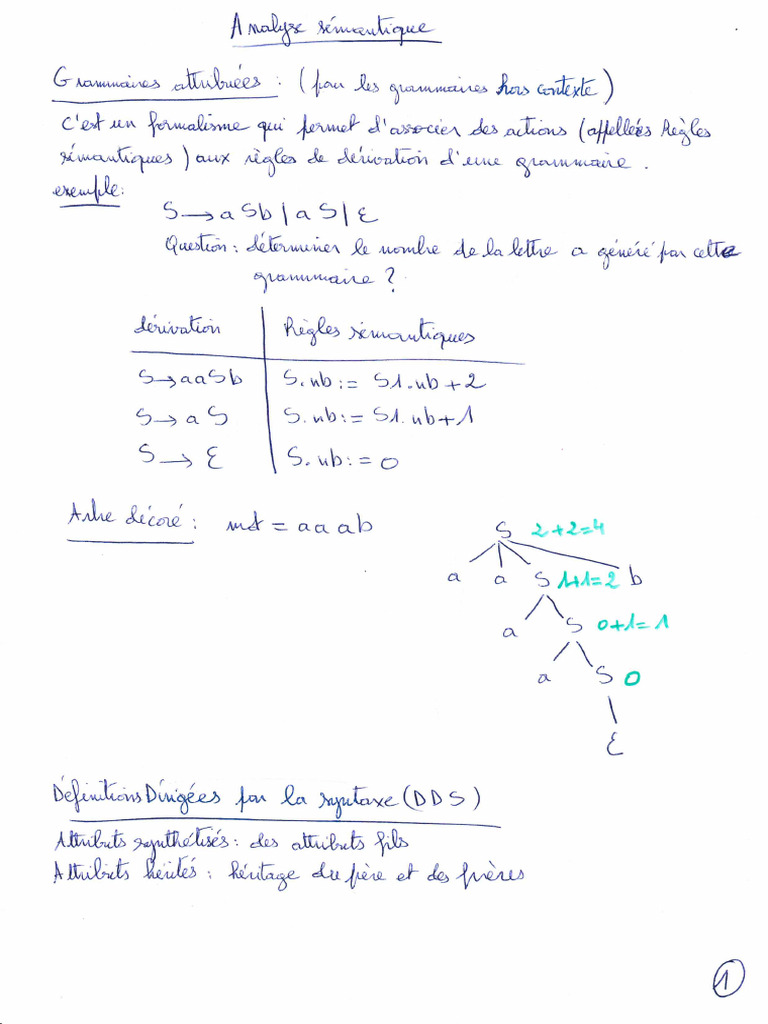 Analyse sémantique
Grammaires attribuées : (pour les grammaires hors contexte)
C'est un formalisme qui permet d'associer des actions (appellées Règles
sémantiques) aux règles de dérivation d'une grammaire.
exemple:
S → aSb | aS | ε
Question : déterminer le nombre de la lettre a généré par cette
grammaire ?
dérivation | Règles sémantiques
S → aaSb | S.nb := S1.nb + 2
S → aS | S.nb := S1.nb + 1
S → ε | S.nb := 0
Arbre décoré : mot = aaab
S 2+2=4
a a S 1+1=2 b
a S 0+1=1
a S 0
ε
Définitions Dirigées par la syntaxe (DDS)
Attributs synthétisés : des attributs fils
Attributs hérités : héritage du père et des frères
1